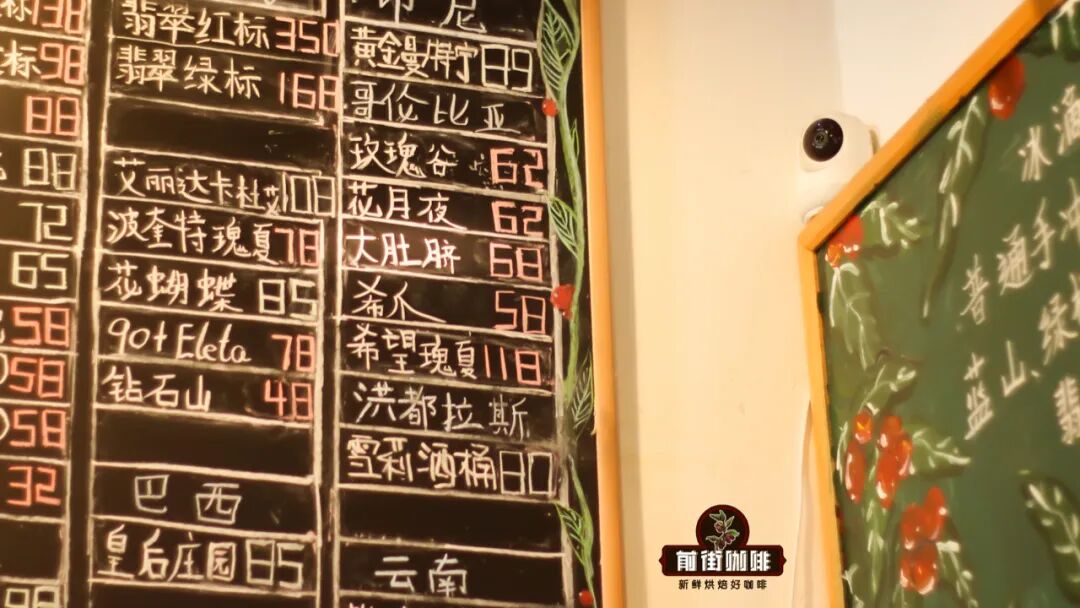 标138
标98
88
88
72
65
58
58
58
32
翡翠红标350
翡翠绿标168
艾丽达卡杜艾108
波奎特瑰夏78
花蝴蝶85
90+ Eleta 78
钻石山48
巴西
皇后庄园85
印尼
黄金曼特宁89
哥伦比亚
玫瑰谷62
花月夜62
大肚脐68
希爪58
希望瑰夏118
洪都拉斯
雪莉酒桶80
云南
冰滴
普通手冲
蓝山、绿
翡
前街咖啡
新鲜烘焙好咖啡